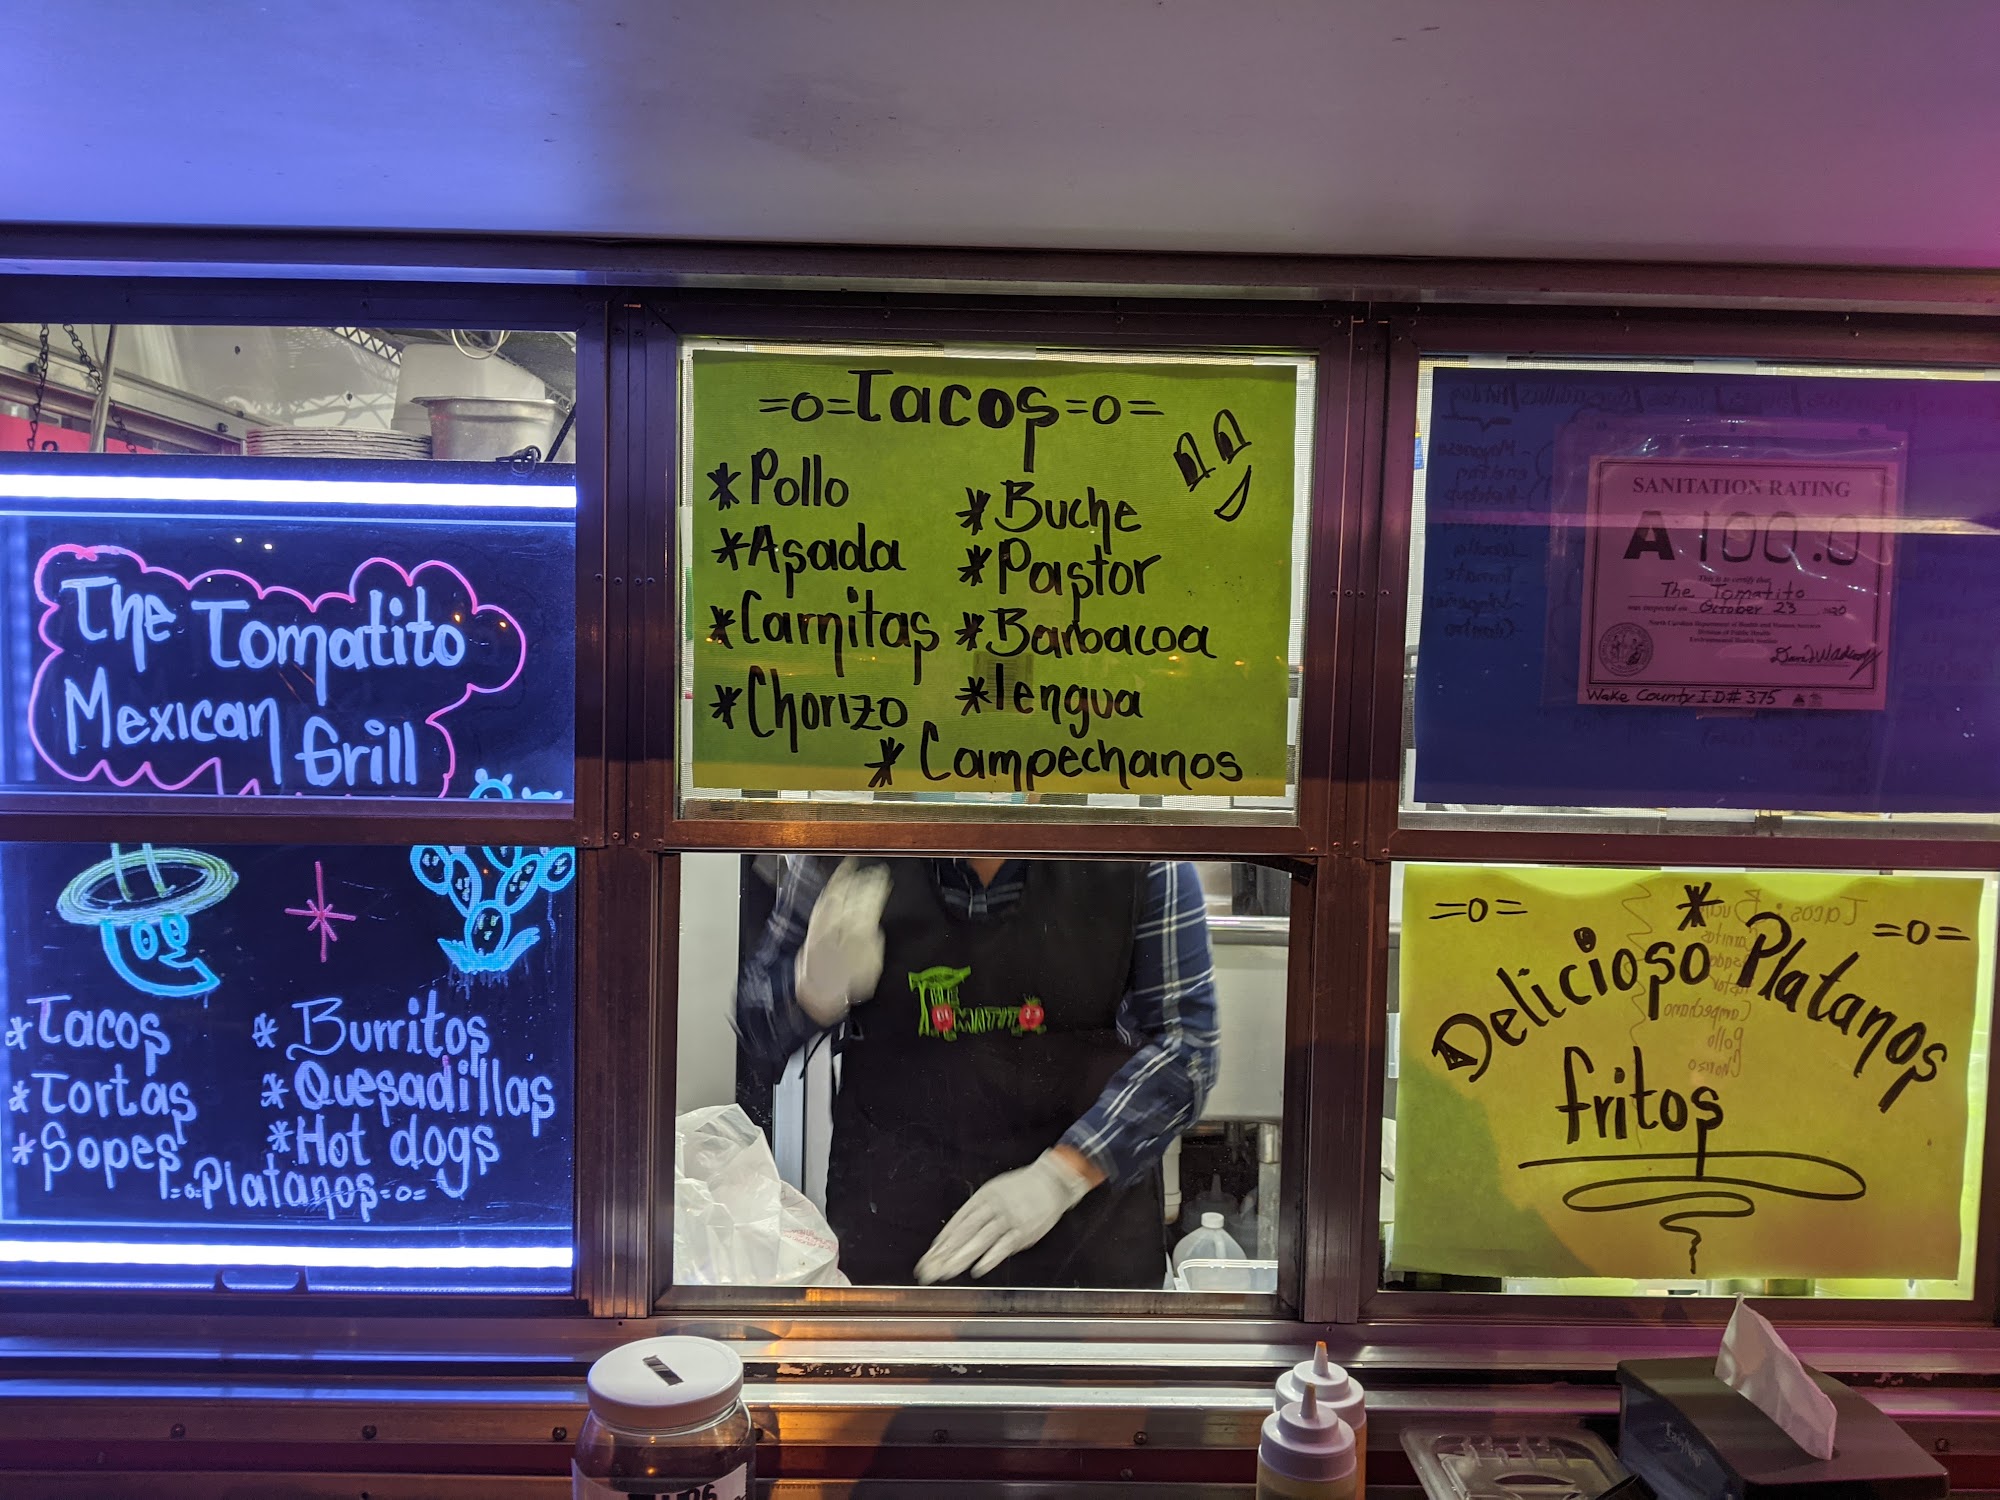 The Tomatito
Mexican Grill
*Tacos
*Tortas
*Sopes
*Burritos
*Quesadillas
*Hot dogs
=o=Platanos=o=
=o=Tacos=o=
*Pollo
*Asada
*Carnitas
*Chorizo
*Buche
*Pastor
*Barbacoa
*lengua
*Campechanos
THE
TOMATITO
SANITATION RATING
A 100.0
This is to certify that
The Tomatito
was inspected on October 23 2020
North Carolina Department of Health and Human Services
Division of Public Health
Environmental Health Section
Wake County ID# 375
=o= * =o=
Delicioso Platanos
fritos